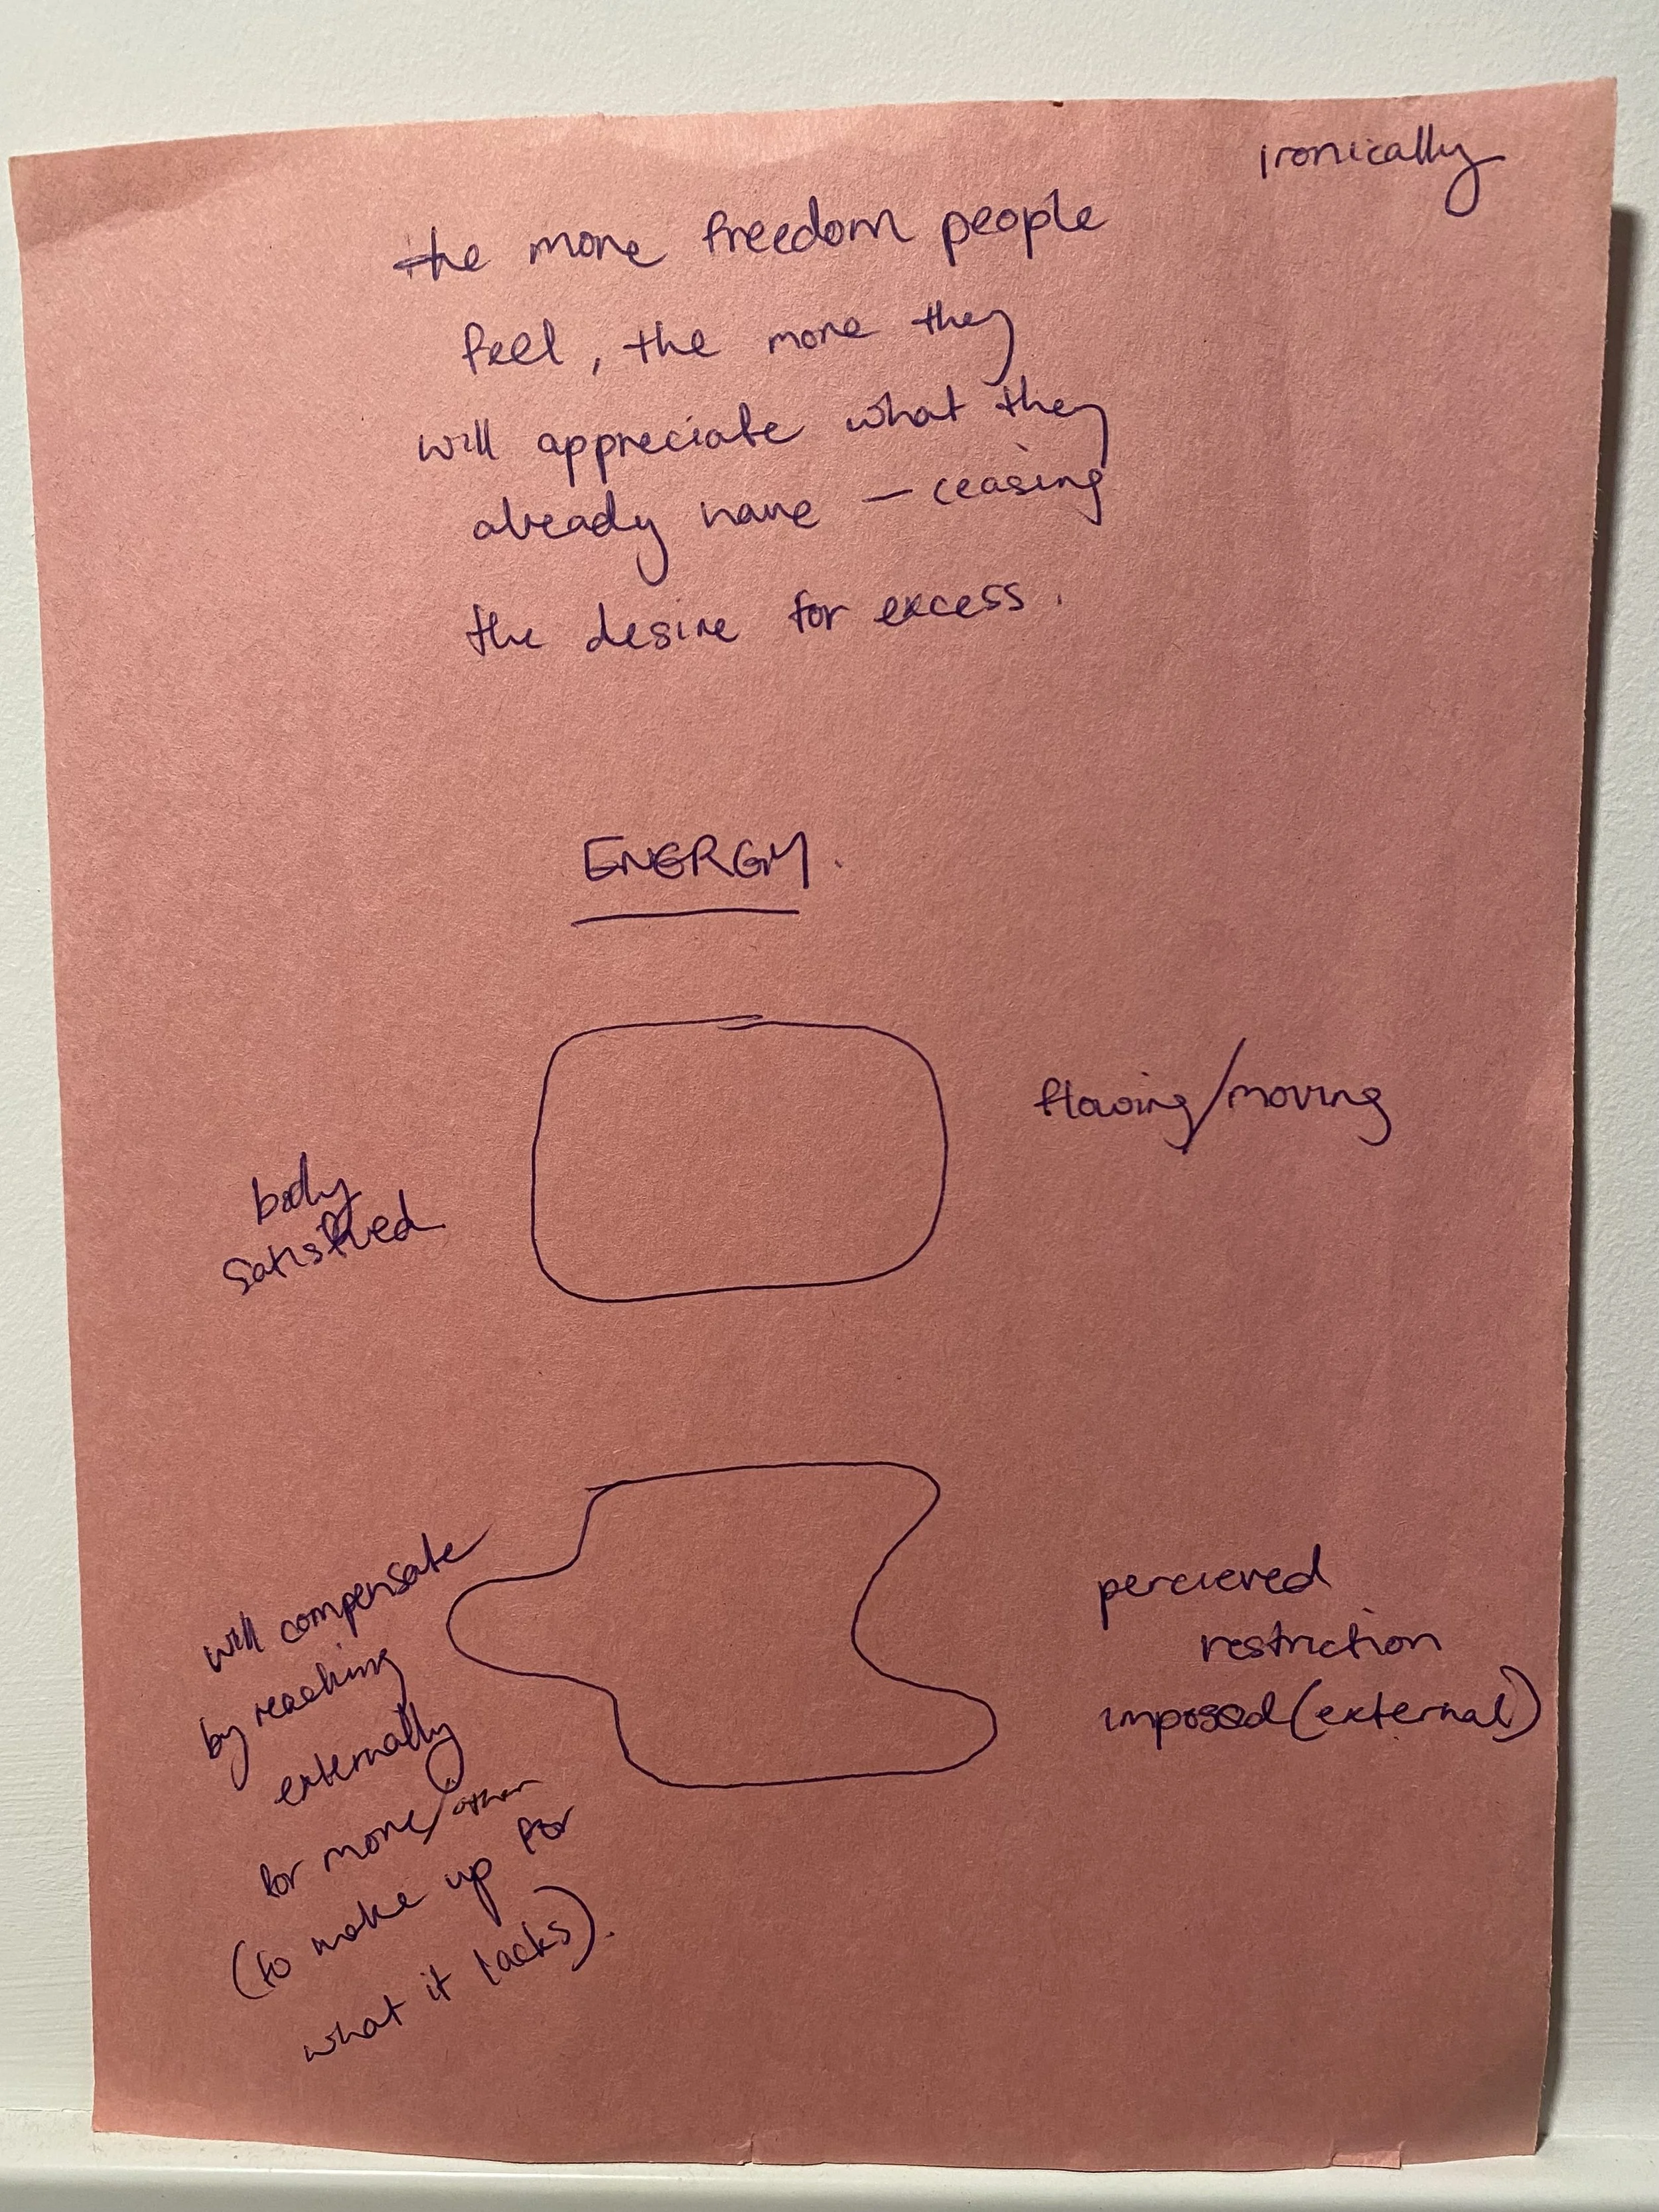 ironically
the more freedom people
feel, the more they
will appreciate what they
already have — ceasing
the desire for excess.
ENERGY.
flowing/moving
body
satisfied
will compensate
by reaching
externally
for more/other
(to make up for
what it lacks).
percieved
restriction
imposed (external)